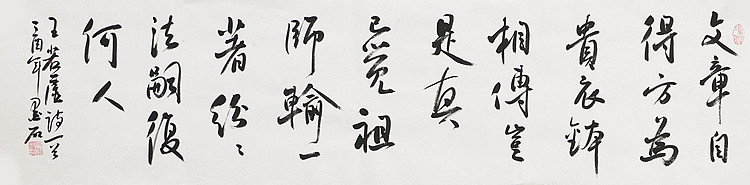 文章自
得方為
貴衣鉢
相傳豈
是真
已覺祖
師輸一
著紛〻
法嗣復
何人
王若虛詩一首
丁酉年墨石